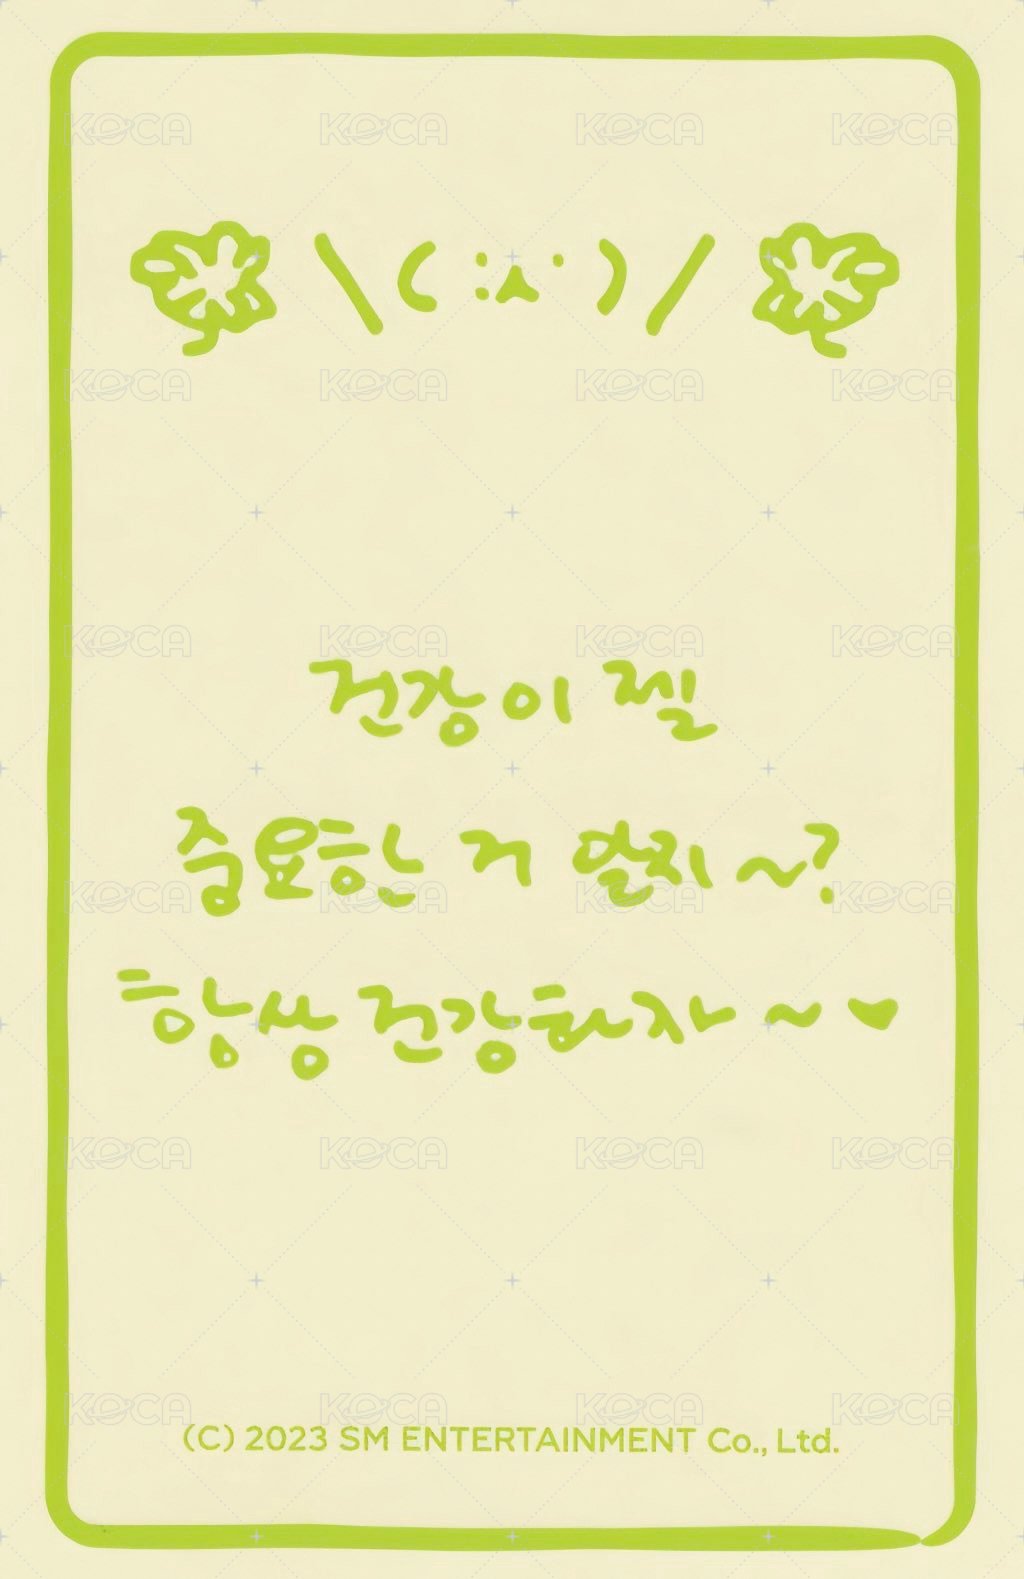 \( :ㅅ˙ )/
건강이 젤
중요한 거 알지~?
항상 건강하자~♥
(C) 2023 SM ENTERTAINMENT Co., Ltd.
KOCA